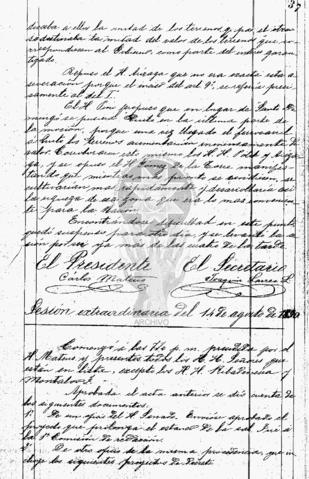 37
dicaba a ellos la mitad de los terrenos y por el otro
la mitad del valor de los terrenos que
al Gobierno, como parte del interes garan
tizado.
Repuso el H. Arizaga que no era exacta esta a
severacion porque el inciso del art 9º, se referia preci
samente al del 1º.
El H. propuso que en lugar de Santo Do
mingo se pusiera Quito en la ultima parte de
la mocion, porque una vez llegado el ferrocarril
a Quito los terrenos aumentarian inmensamente de
valor. en lo mismo los H. H. y
y se opuso el H. Gomez de la Torre
que mientras mas pronto se vendieran, se
cultivarian mas rapidamente y desarrollaria asi
la riqueza de esa zona, que era lo mas convenien
te para la Nacion.
Encontrandose dificultad en este punto
quedo suspenso para otro dia, y se levanto la se
sion por ser ya mas de las cuatro de la tarde.
El Presidente El Secretario
Carlos Mateus Joaquin Larrea L.
Sesión extraordinaria del 14 de agosto de 1890
ARCHIVO
Comenzó a las 7½ p.m. presidida por el
H. Mateus y presentes todos los H. H. Señores que
estan en lista, excepto los H. H. Ribadeneira y
Montalvo F.
Aprobada el acta anterior se dio cuenta de
los siguientes documentos:
1º De un oficio del H. Senado. Envia aprobado el
proyecto que prolonga el estanco de la sal. Pasó a
la 1ª Comision de redaccion.
2º De otro oficio de la misma procedencia, que in
cluye los siguientes proyectos de Decreto